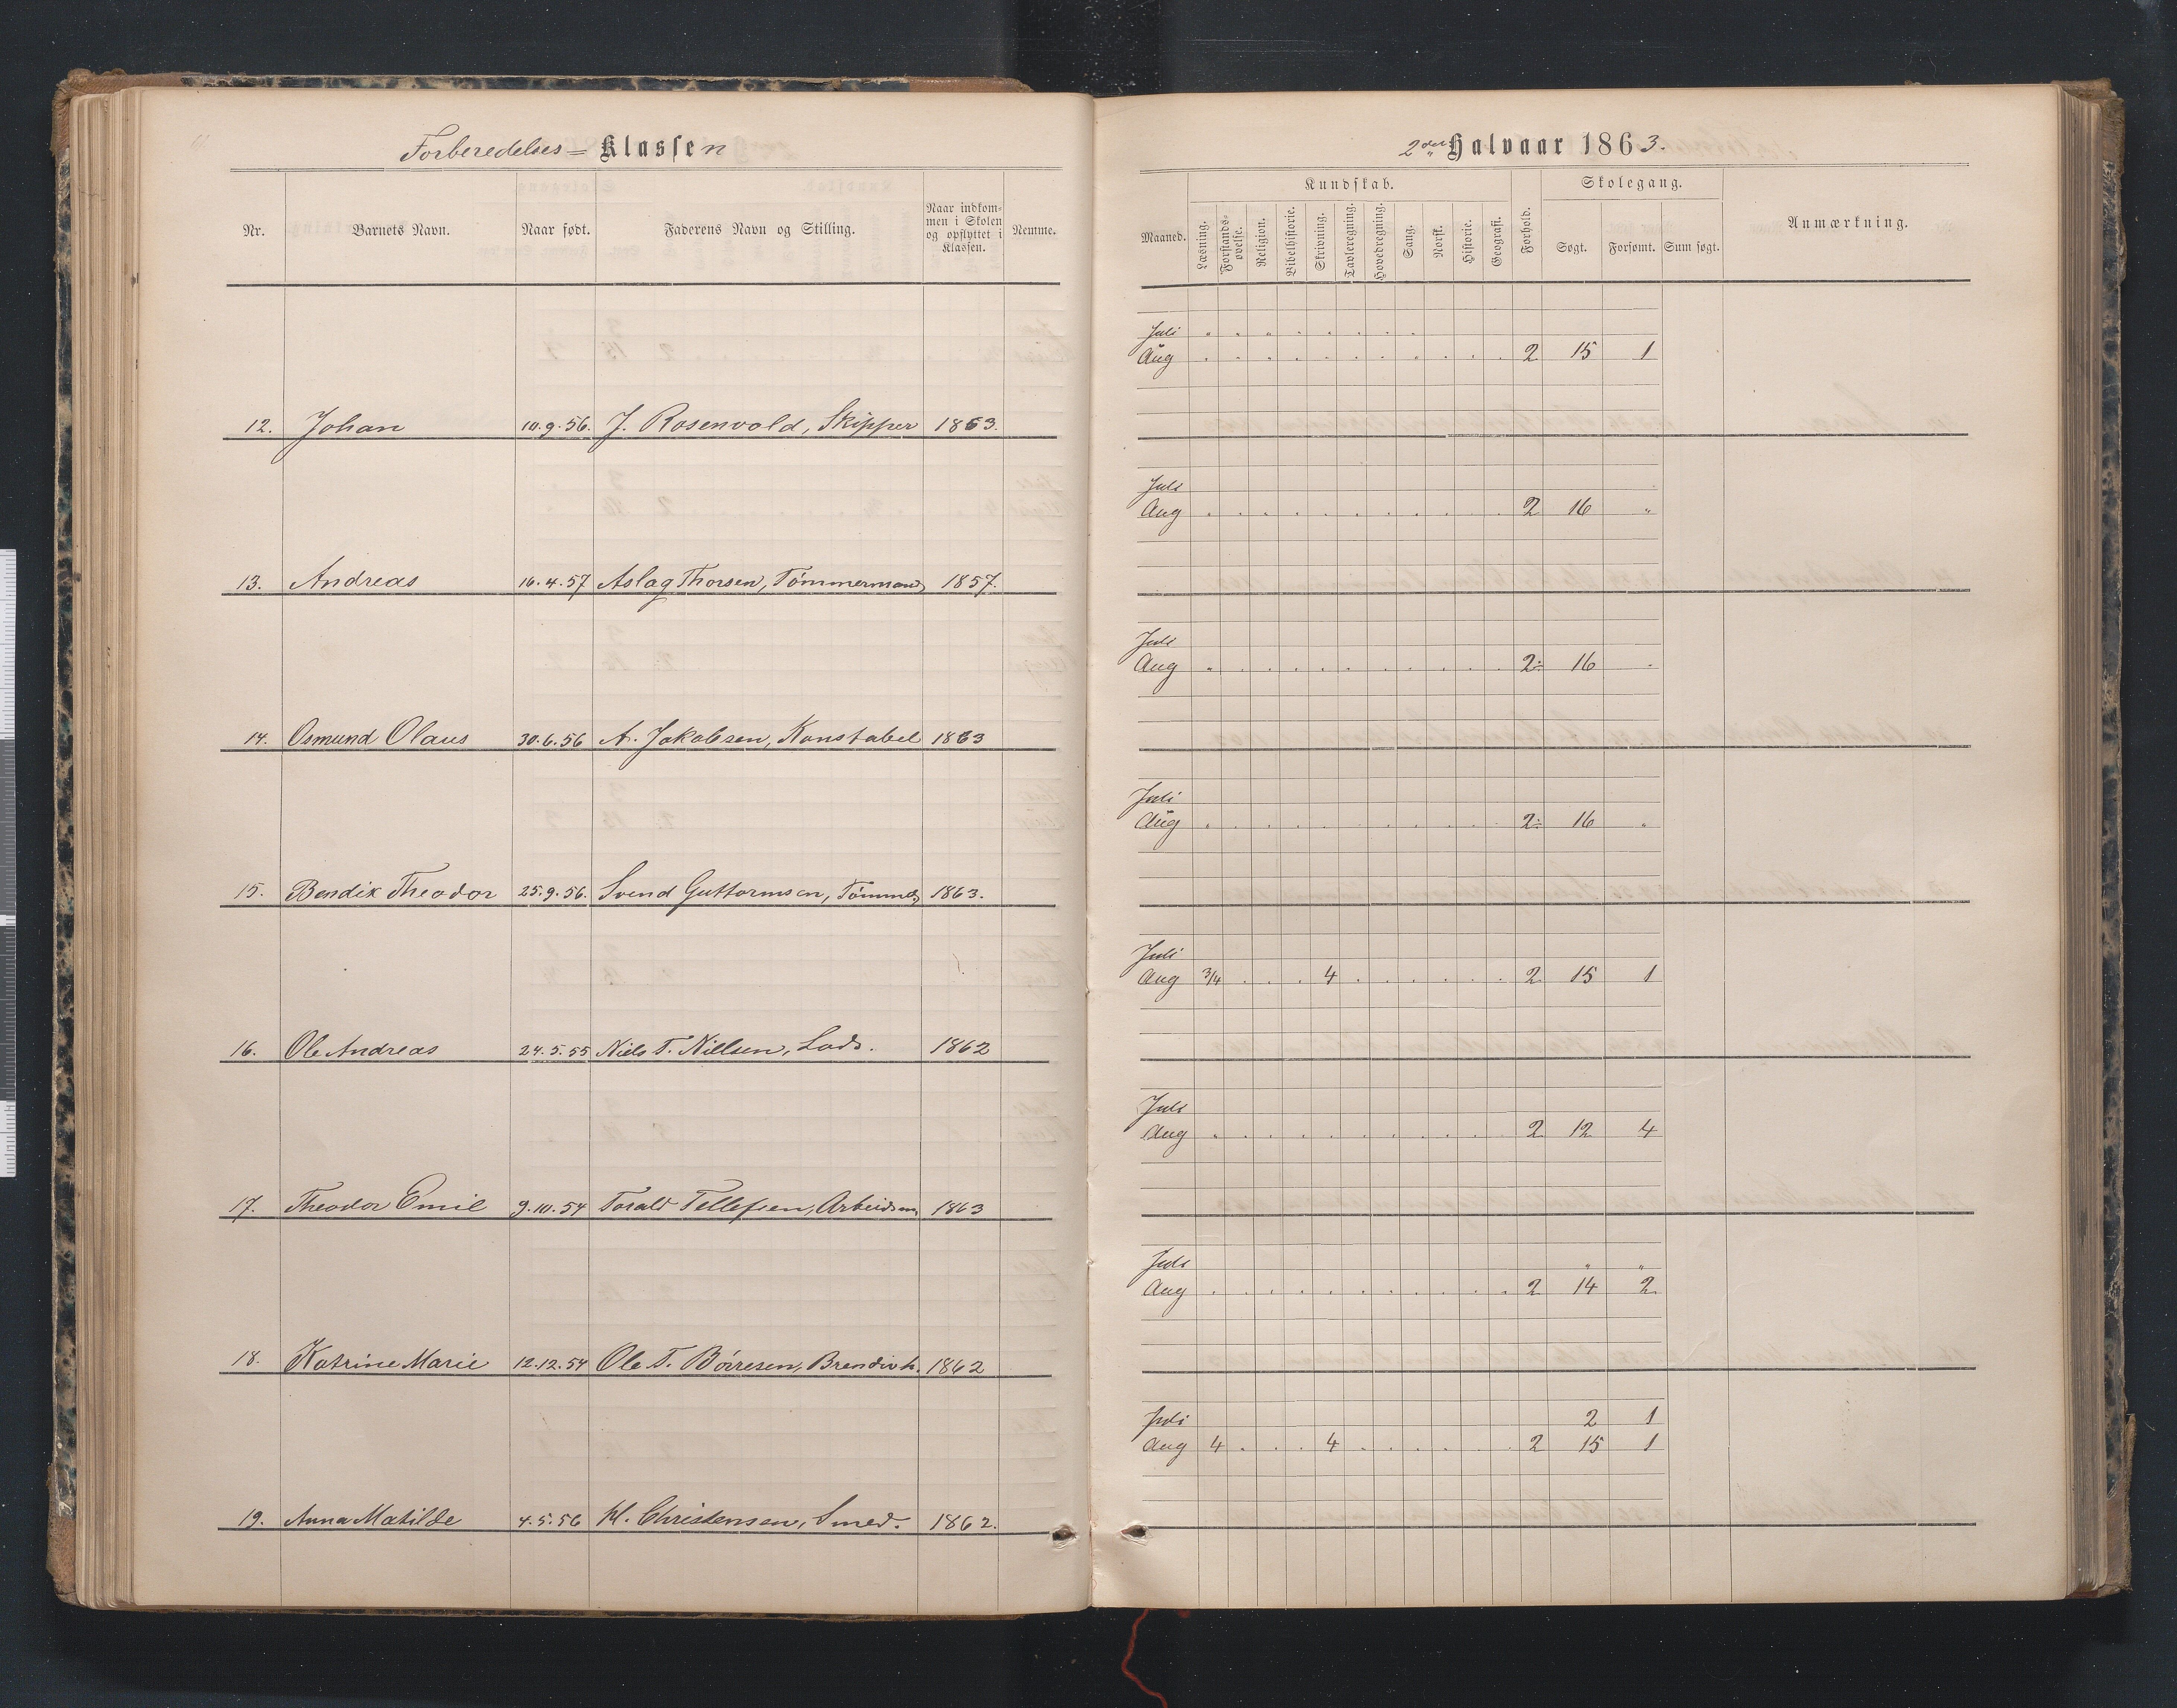 Forberedelses= Klassen
Nr. Barnets Navn. Naar født. Faderens Navn og Stilling. Naar indkommen i Skolen og opflyttet i Klassen. Nemme.
12. Johan 10.9.56. J. Rosenvold, Skipper 1863.
13. Andreas 16.4.57 Aslag Thorsen, Tømmermand 1857.
14. Osmund Olaus 30.6.56 A. Jakobsen, Konstabel 1863
15. Bendik Theodor 25.9.56. Svend Guttormsen, Tømmerm 1863.
16. Ole Andreas 24.5.55 Niels T. Nillsen, Lods. 1862
17. Theodor Emil 9.10.54 Torald Tellefsen, Arbeidsm. 1863
18. Katrine Marie 12.12.54 Ole T. Börresen, 1862
19. Anna Matilde 4.5.56 Kl. Christensen, Smed. 1862.
2det Halvaar 1863.
Kundskab. Skolegang.
Maaned. Læsning. Forstandsøvelse. Religion. Bibelhistorie. Skrivning. Tavleregning. Hovedregning. Sang. Norsk. Historie. Geografi. Forhold. Søgt. Forsømt. Sum søgt. Anmærkning.
Juli " . . . . . . .
Aug . . . . . . . . . . . 2 15 1
Juli
Aug . . . . . . . . . . . 2 16 "
Juli
Aug " . . . . . . . . . . 2÷ 16 .
Juli
Aug . . . . . . . . . . . 2÷ 16 "
Juli
Aug 3/4 . . . 4 . . . . . . 2 15 1
Juli
Aug " . . . . . . . . . . 2 12 4
Juli " "
Aug . . . . . . . . . . . 2 14 2
Juli 2 1
Aug 4 . . . 4 . . . . . . 2 15 1